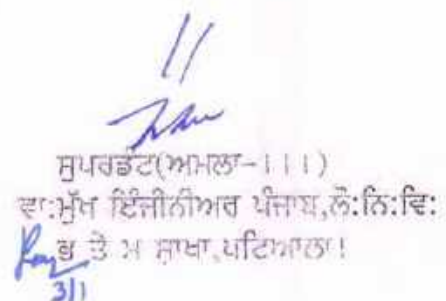 ਸੁਪਰਡੰਟ(ਅਮਲਾ-।।।)
ਵਾ:ਮੁੱਖ ਇੰਜੀਨੀਅਰ ਪੰਜਾਬ,ਲੋ:ਨਿ:ਵਿ:
ਭ ਤੇ ਮ ਸ਼ਾਖਾ,ਪਟਿਆਲਾ!
3|1